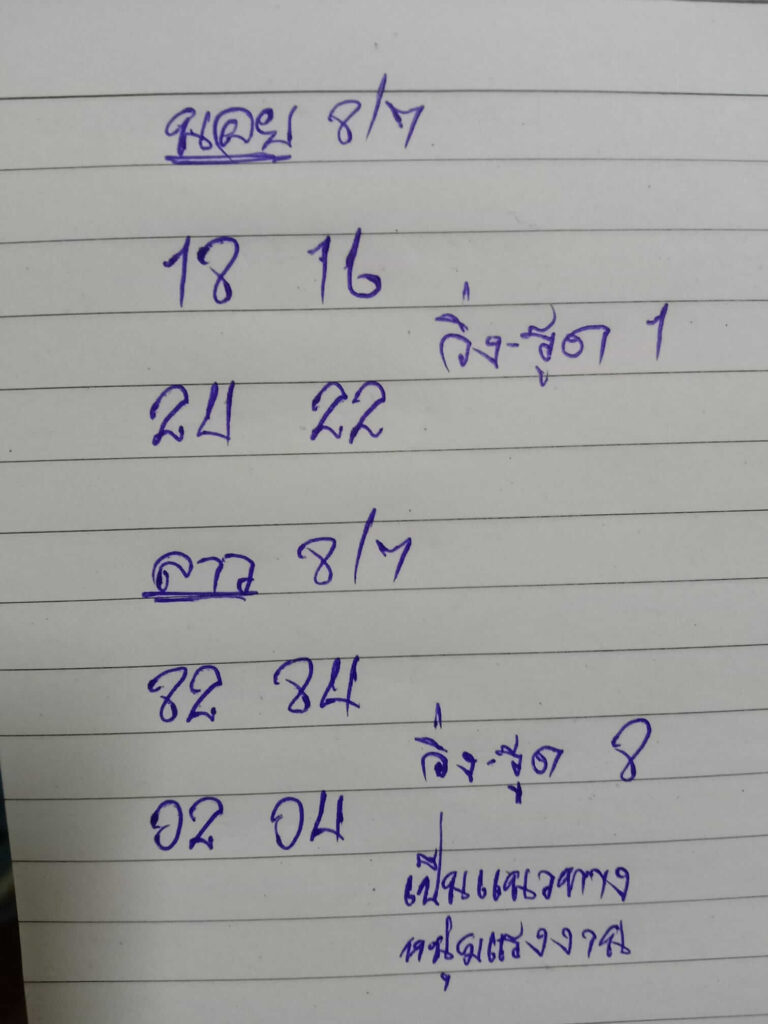 นอย 8/7
18 16
วิ่ง-รูด 1
24 22
ลาว 8/7
82 84
วิ่ง-รูด 8
02 04
เป็นแนวทาง
หนุ่มแรงงาน